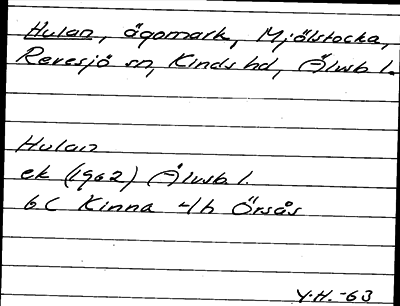 Hulan, ägomark, Mjölstocka,
Revesjö sn, Kinds hd, Älvsb l.
Hulan
ek (1962) Älvsb l.
6C Kinna 4b Örsås
Y.H. -63